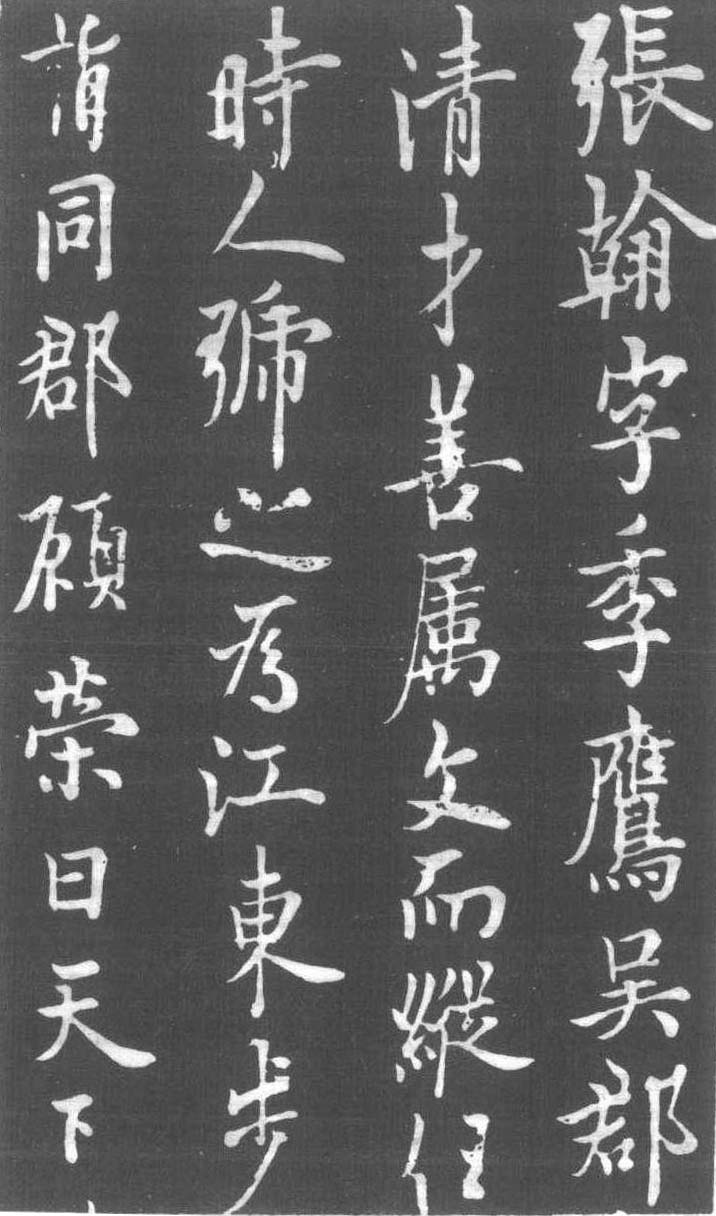 張翰字季鷹吳郡
清才善属文而縱任
時人號之為江東步
謂同郡顾荣曰天下